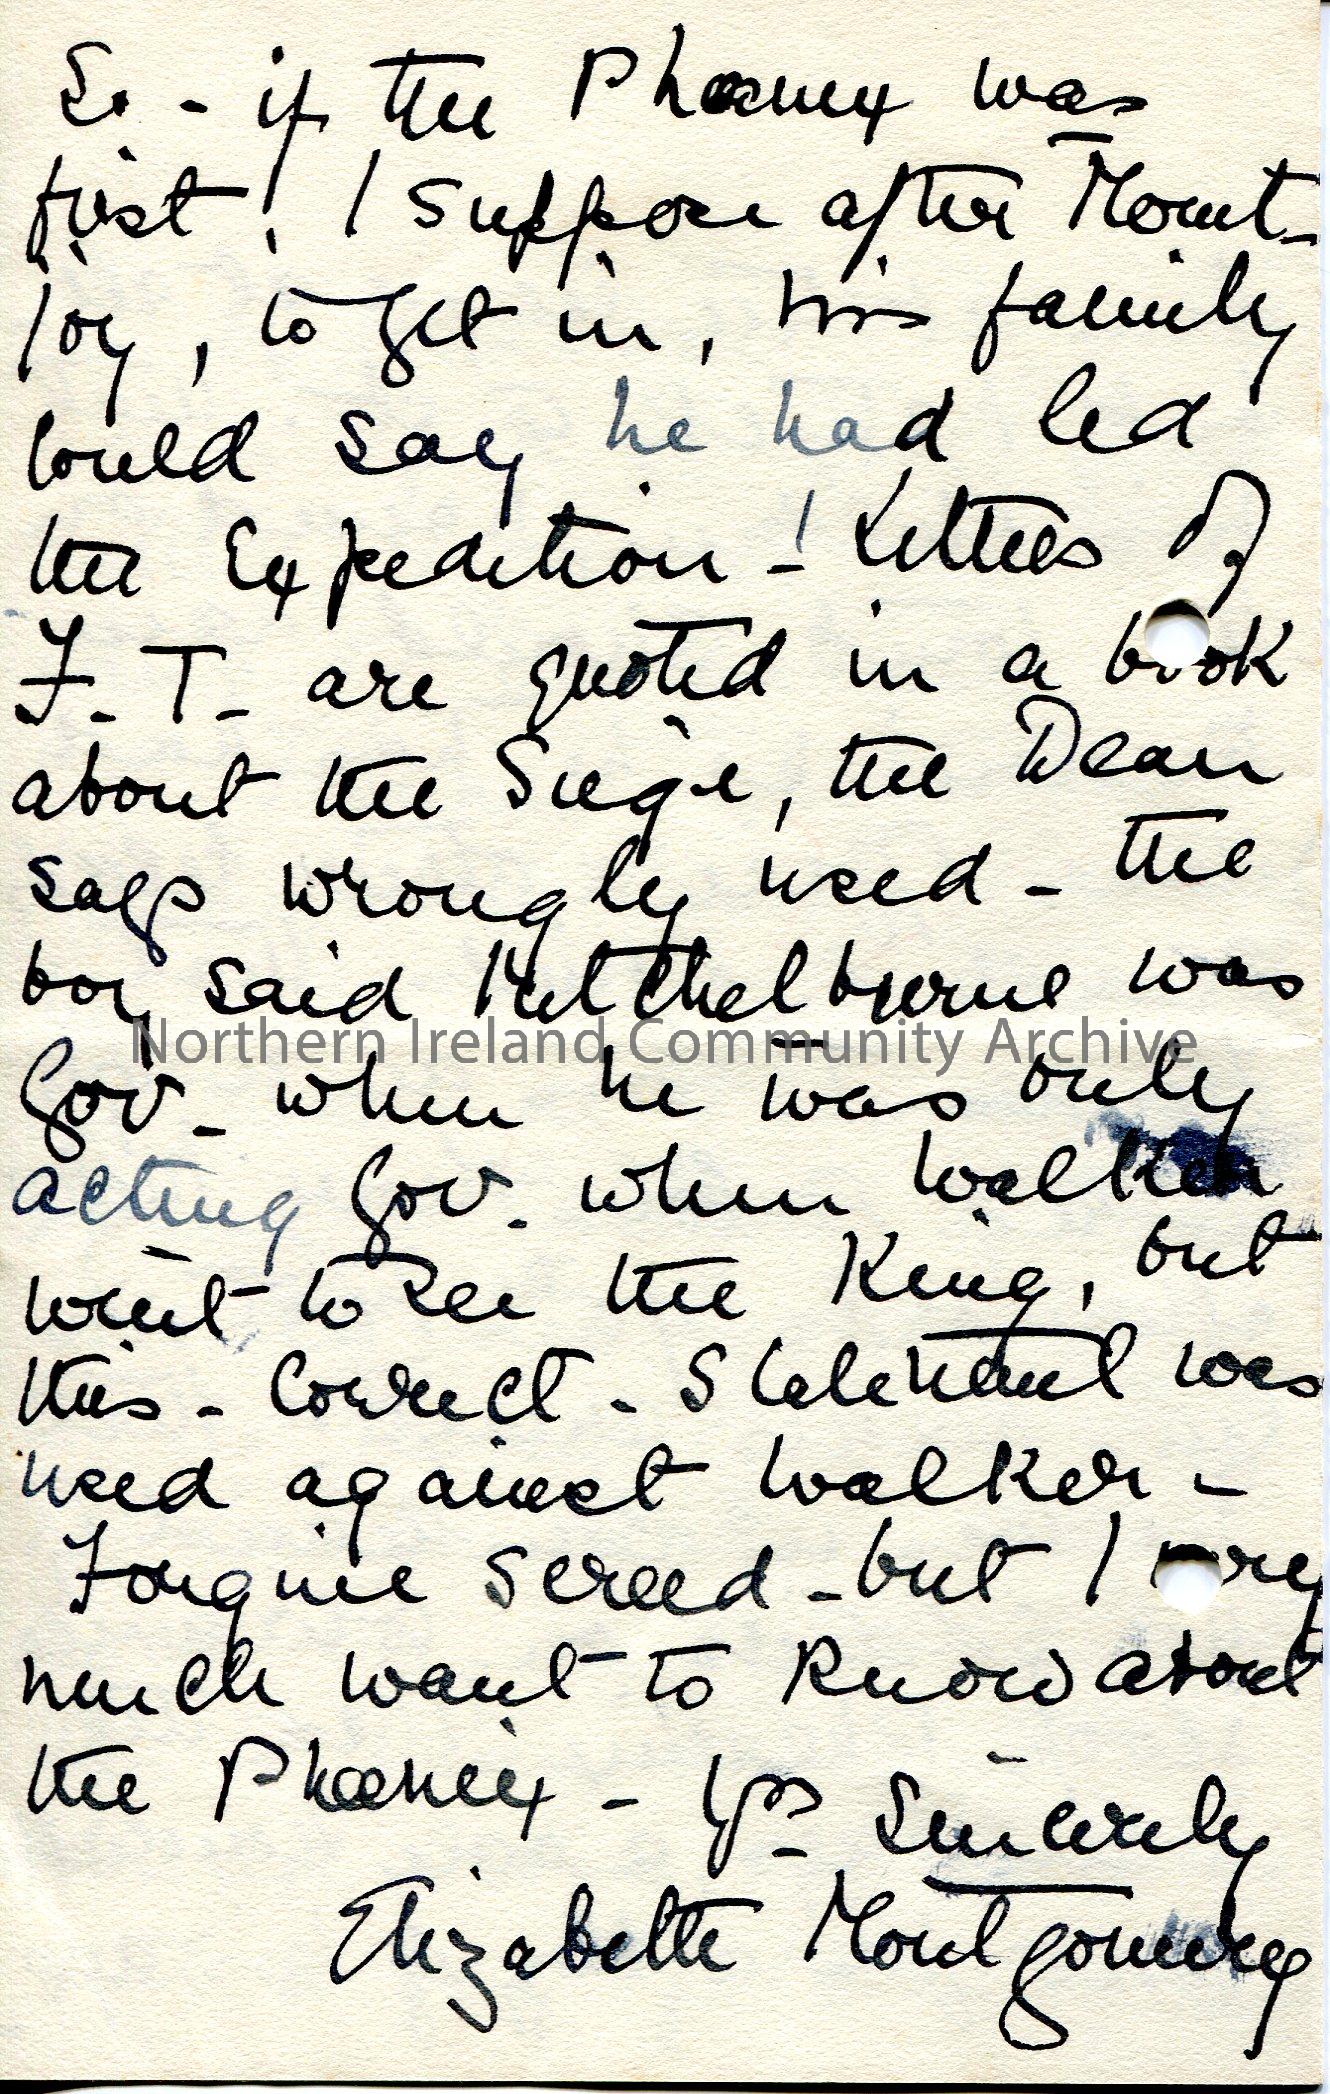 So - if the Phoenix was
first, I suppose after Mount-
joy, to get in, his family
could say he had led
the Expedition -! Letters of
F. T. are quoted in a book
about the Siege, the Dean
says wrongly used - the
boy said Mitchelburne was
Northern Ireland Community Archive
Gov - when he was only
acting Gov. when Walker
went to see the King, but
this - correct - statement was
used against Walker -
Forgive screed - but I very
much want to know about
the Phoenix - Yrs sincerely
Elizabeth Montgomery